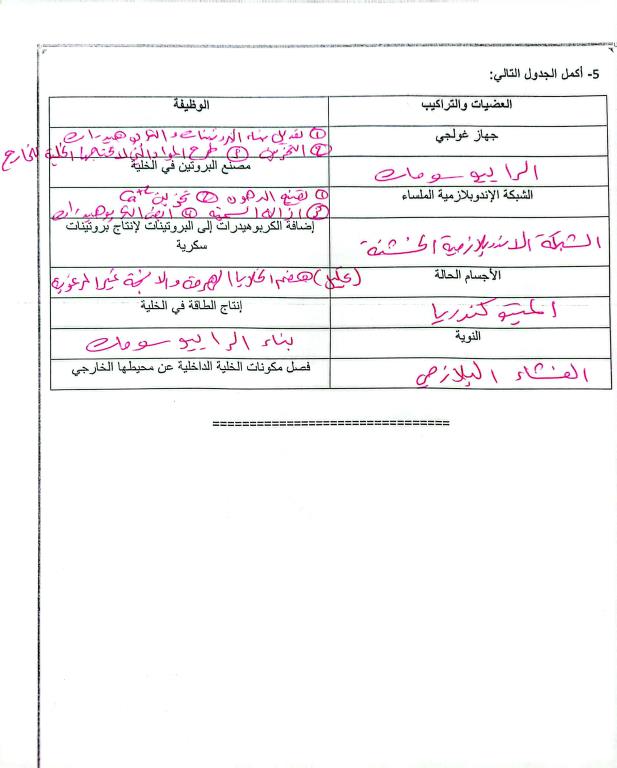 5- أكمل الجدول التالي:
العضيات والتراكيب الوظيفة
جهاز غولجي ① تعديل بناء البروتينات والكربوهيدرات
② التخزين ③ طرح المواد التي لا تحتاجها الخلية للخارج
الرايبوسومات مصنع البروتين في الخلية
الشبكة الإندوبلازمية الملساء ① الدهون ② تخزين Ca+2
③ ازالة السمية ④ الكربوهيدرات
الشبكة الاندوبلازمية الخشنة إضافة الكربوهيدرات إلى البروتينات لإنتاج بروتينات
سكرية
الأجسام الحالة (تحليل) هضم الخلايا الهرمة والانسجة غير المرغوبة
الميتوكندريا إنتاج الطاقة في الخلية
النوية بناء الرايبوسومات
الغشاء البلازمي فصل مكونات الخلية الداخلية عن محيطها الخارجي
================================